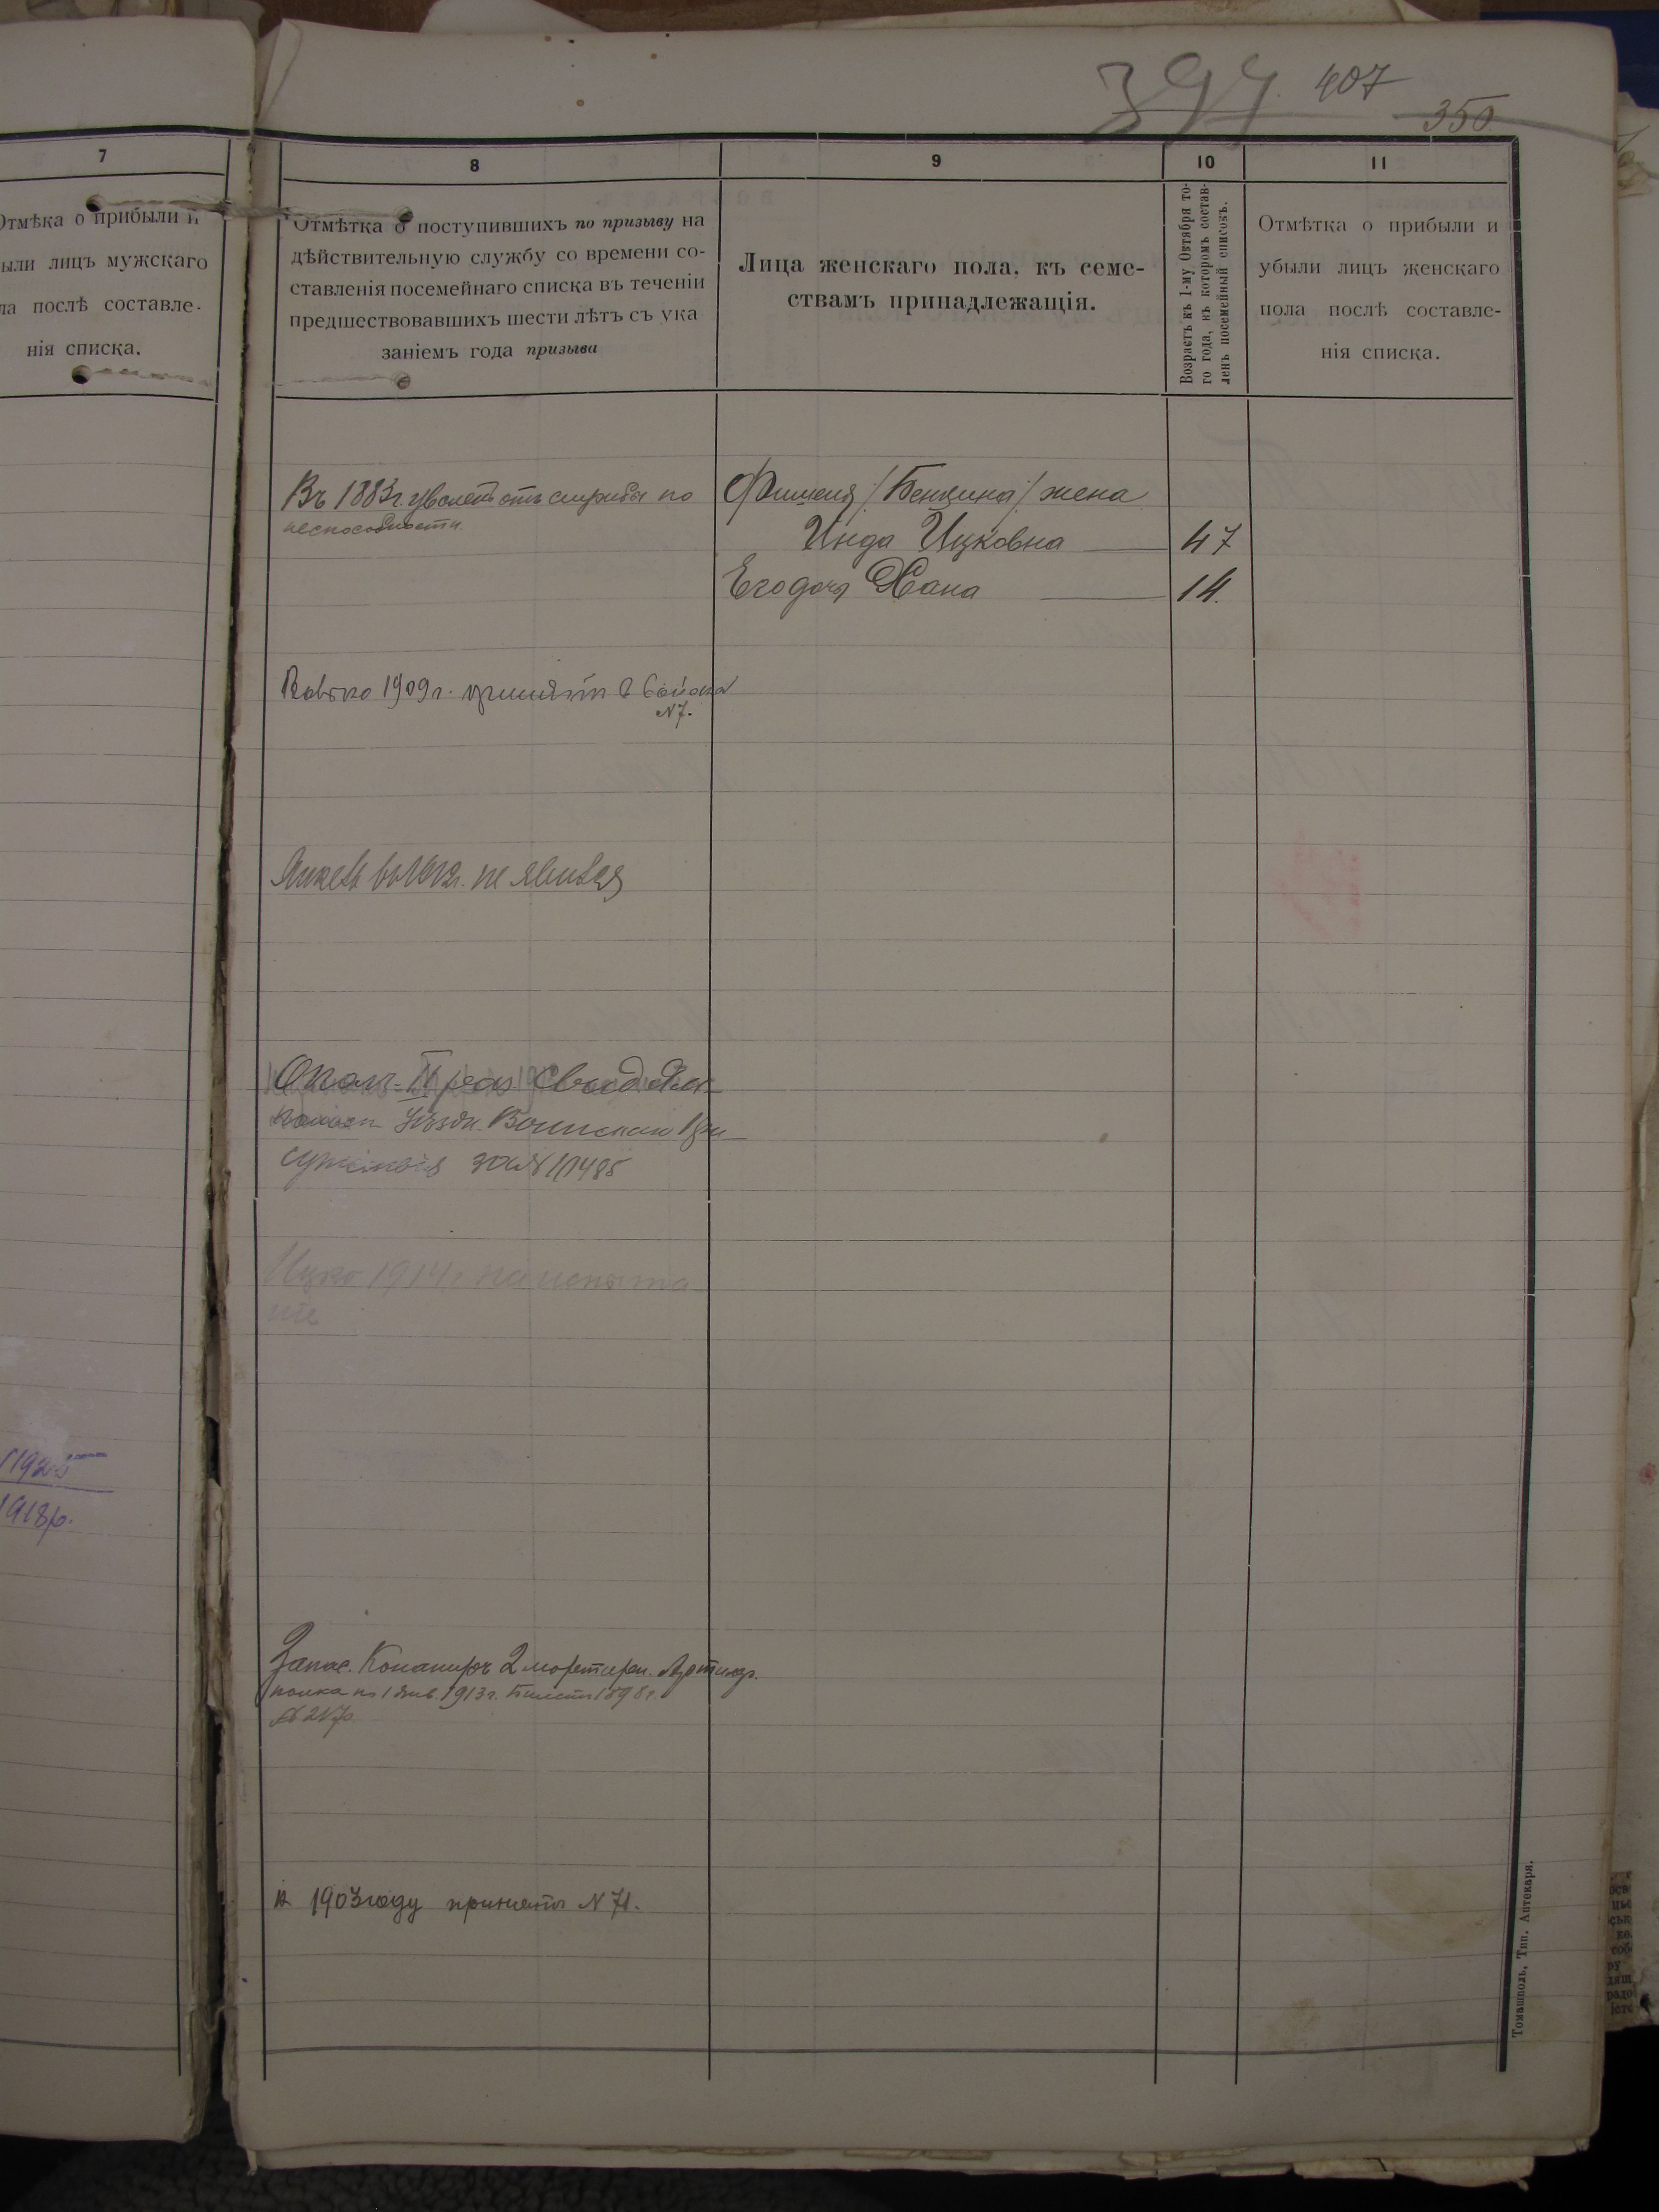 394 407
350
7
Отмѣка о прибыли и
ыли лицъ мужскаго
ла послѣ составле-
нія списка.
1925
1918р.
8
Отмѣтка о поступившихъ по призыву на
дѣйствительную службу со времени со-
ставленія посемейнаго списка въ теченіи
предшествовавшихъ шести лѣтъ съ ука
заніемъ года призыва
9
Лица женскаго пола, къ семе-
ствамъ принадлежащія.
10
Возрастъ къ 1-му Октября то-
го года, къ которомъ состав-
ленъ посемейный списокъ.
11
Отмѣтка о прибыли и
убыли лицъ женскаго
пола послѣ составле-
нія списка.
Въ 1883г. уволенъ отъ службы по
неспособности.
Фишеля /Бенциона/ жена
Инда Ицковна 47
Его дочь Хана 14.
1909 г. принятъ в войска
N 7.
Янкель въ 1912г. не явился
Уѣздн. Воинскаго При
сутствія за №
Ицко 1914 г на испыта
ніе
Запас. Канониръ 2 мортирн. Артилер.
полка по 1 Янв. 1913 г. билетъ 1898 г.
№
в 1903 году принятъ N 71.
Томашполь, Тип. Аптекаря.